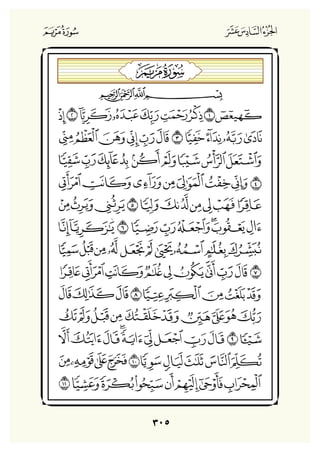 الجُزْءُ السَّادِسَ عَشَرَ
سُورَةُ مَرْيَمَ
سُورَةُ مَرْيَمَ
بِسْمِ ٱللَّهِ ٱلرَّحْمَٰنِ ٱلرَّحِيمِ
كٓهيعٓصٓ ١ ذِكْرُ رَحْمَتِ رَبِّكَ عَبْدَهُۥ زَكَرِيَّآ ٢ إِذْ
نَادَىٰ رَبَّهُۥ نِدَآءً خَفِيًّا ٣ قَالَ رَبِّ إِنِّى وَهَنَ ٱلْعَظْمُ مِنِّى
وَٱشْتَعَلَ ٱلرَّأْسُ شَيْبًا وَلَمْ أَكُنۢ بِدُعَآئِكَ رَبِّ شَقِيًّا
٤ وَإِنِّى خِفْتُ ٱلْمَوَٰلِىَ مِن وَرَآءِى وَكَانَتِ ٱمْرَأَتِى
عَاقِرًا فَهَبْ لِى مِن لَّدُنكَ وَلِيًّا ٥ يَرِثُنِى وَيَرِثُ مِنْ
ءَالِ يَعْقُوبَ ۖ وَٱجْعَلْهُ رَبِّ رَضِيًّا ٦ يَٰزَكَرِيَّآ إِنَّا
نُبَشِّرُكَ بِغُلَٰمٍ ٱسْمُهُۥ يَحْيَىٰ لَمْ نَجْعَل لَّهُۥ مِن قَبْلُ سَمِيًّا
٧ قَالَ رَبِّ أَنَّىٰ يَكُونُ لِى غُلَٰمٌ وَكَانَتِ ٱمْرَأَتِى عَاقِرًا
وَقَدْ بَلَغْتُ مِنَ ٱلْكِبَرِ عِتِيًّا ٨ قَالَ كَذَٰلِكَ قَالَ
رَبُّكَ هُوَ عَلَىَّ هَيِّنٌ وَقَدْ خَلَقْتُكَ مِن قَبْلُ وَلَمْ تَكُ
شَيْـًٔا ٩ قَالَ رَبِّ ٱجْعَل لِّىٓ ءَايَةً ۚ قَالَ ءَايَتُكَ أَلَّا
تُكَلِّمَ ٱلنَّاسَ ثَلَٰثَ لَيَالٍ سَوِيًّا ١٠ فَخَرَجَ عَلَىٰ قَوْمِهِۦ مِنَ
ٱلْمِحْرَابِ فَأَوْحَىٰٓ إِلَيْهِمْ أَن سَبِّحُوا۟ بُكْرَةً وَعَشِيًّا ١١
٣٠٥